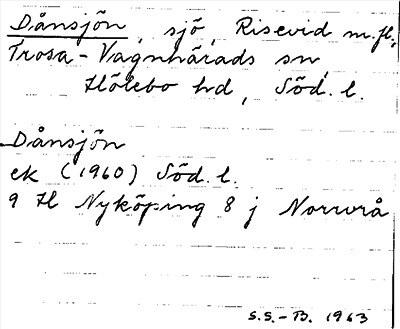 Dånsjön, sjö, Risevid m.fl.,
Trosa-Vagnhärads sn,
Hölebo hd, Söd. l.
Dånsjön
ek (1960) Söd. l.
9 H Nyköping 8 j Norrvrå
S.S.-B. 1963